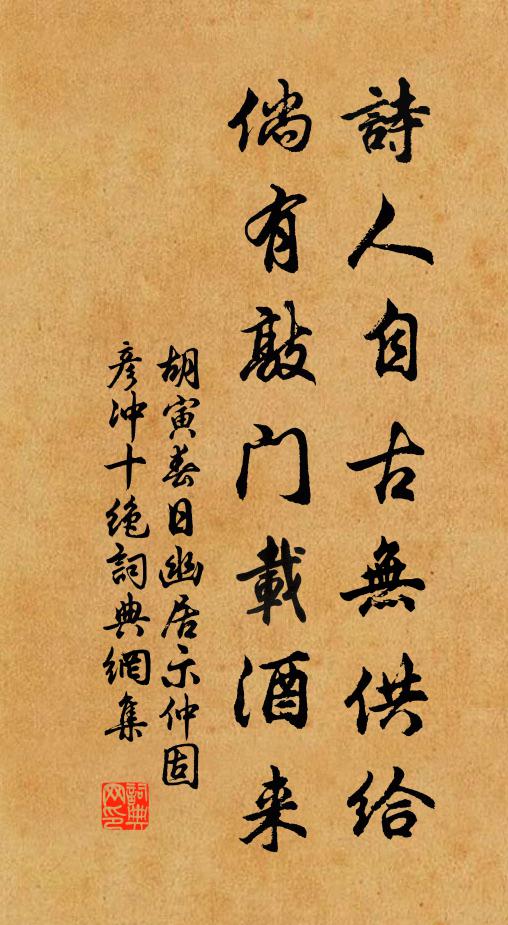 詩人自古無供給
倘有敲门載酒来
胡寅春日幽居示仲固
彦冲十绝詞典網集
詞典
网印